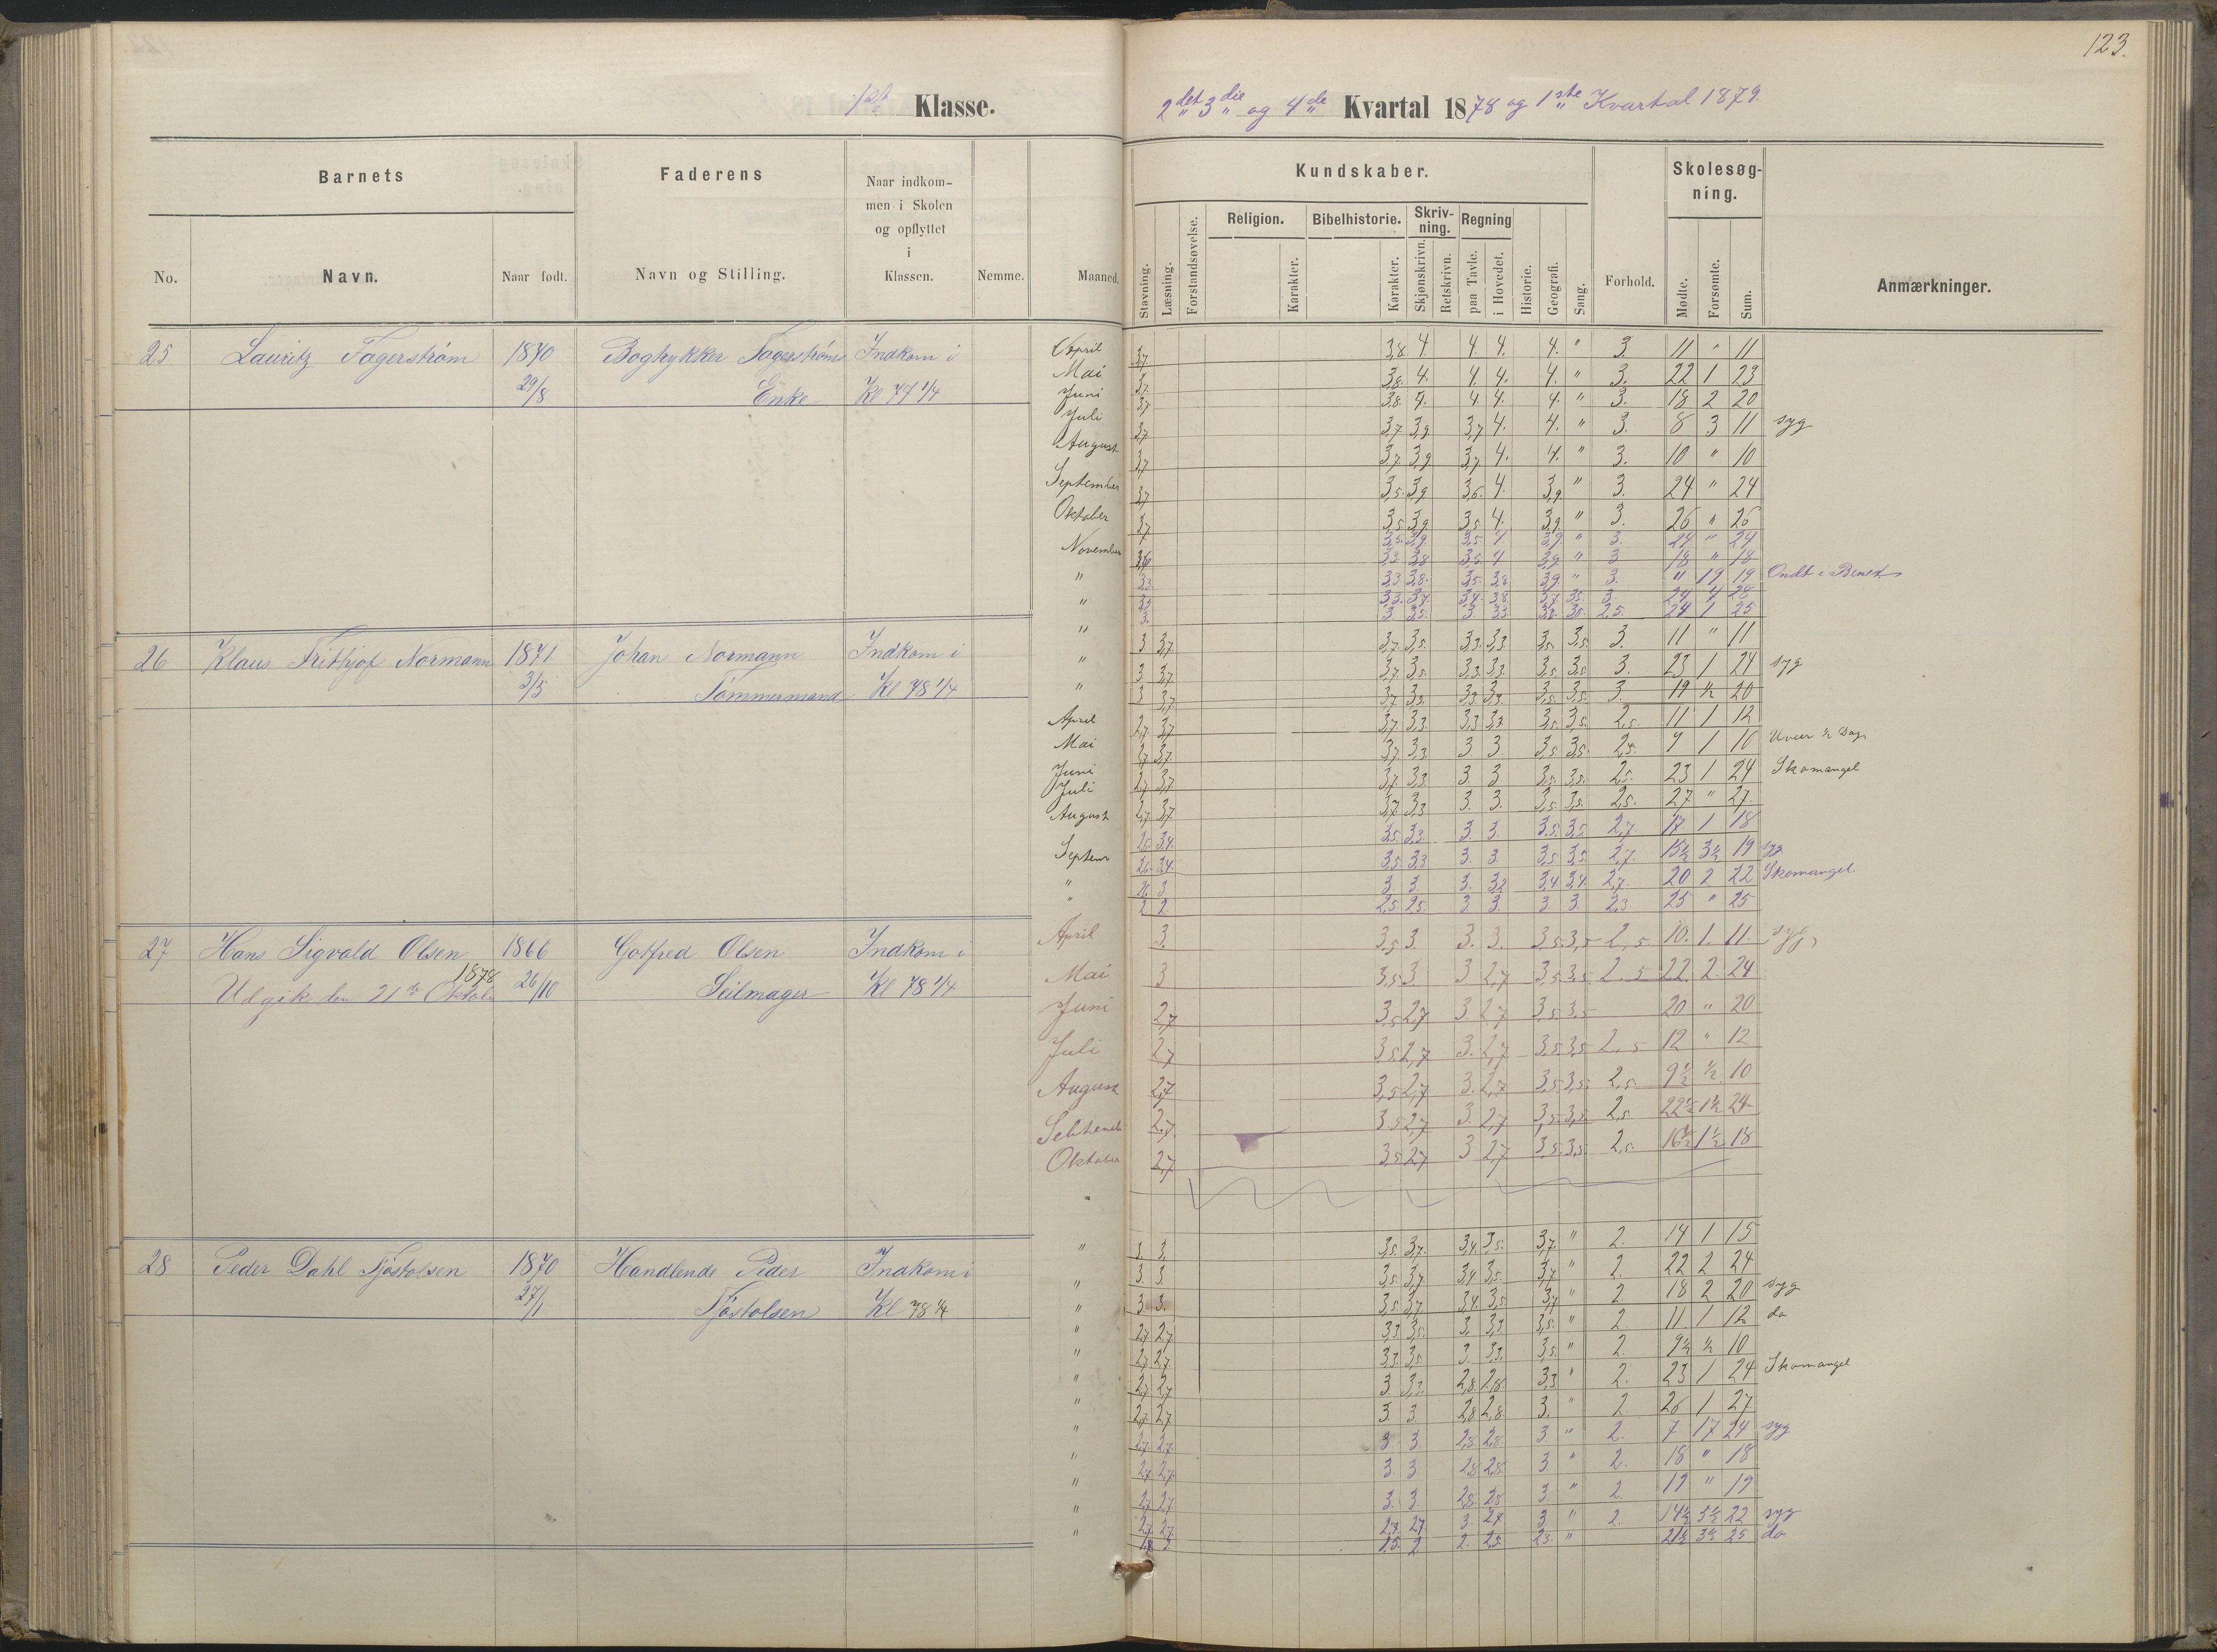 123.
1ste Klasse.
2det 3die og 4de Kvartal 1878 og 1ste Kvartal 1879.
Barnets
Faderens
Naar indkommen i Skolen og opflyttet i Klassen.
Nemme.
Maaned.
No.
Navn.
Naar født.
Navn og Stilling.
Kundskaber.
Stavning.
Læsning.
Forstandsøvelse.
Religion.
Karakter.
Bibelhistorie.
Karakter.
Skrivning.
Skjønskrivn.
Retskrivn.
Regning
paa Tavle.
i Hovedet.
Historie.
Geografi.
Sang.
Forhold.
Skolesøgning.
Mødte.
Forsømte.
Sum.
Anmærkninger.
25 Lauritz Fagerstrøm 1870 Fagerstrøms Indkom i
29/8 Enke Kl 77 1/4
April 3,7 3,8. 4. 4. 4. 4. " 3. 11 " 11
Mai 3,7 3,8. 4. 4. 4. 4. " 3. 22 1 23
Juni 3,7 3,8. 4. 4. 4. 4. " 3. 18 2 20
Juli 3,7 3,7. 3,9. 3,7 4. 4. " 3. 8 3 11 syg
August 3,7 3,7. 3,9 3,7 4. 4. " 3. 10 " 10
September 3,7 3,5. 3,9 3,6. 4. 3,9 " 3. 24 " 24
Oktober 3,7 3,5. 3,9 3,5. 4. 3,9. " 3. 26 " 26
November 3,5. 3,9. 3,5 4 3,9 " 3. 24 " 24
3,3 3,8 3,5. 4 3,9 " 3 18 " 18
" 3,3 3,3 3,8. 3,5 3,8 3,9. " 3. " 19 19 Ondt i Benet
" 24 4 28
3. 3. 3,5. 3 3,3. 2,5. 24 1 25
"
26 Klaus Frithjof Normann 1871 Johan Normann Indkom i
3/5 Tømmermand Kl 78 1/4
3 3,7 3,7. 3,5. 3,3. 3,3 3,5. 3,5. 3. 11 " 11
" 3 3,7 3,7. 3,5. 3,3. 3,3. 3,5. 3,5. 3. 23 1 24 syg
" 3 3,7. 3,7 3,5. 3,3 3,3. 3,5. 3,5. 3. 19 1/2 20
April 2,7. 3,7 3,7. 3,3. 3,3. 3,3. 3,5. 3,5. 2,5. 11 1 12
Mai 2,7 3,7. 3,7 3,3. 3. 3. 3,5 3,5. 2,5. 9 1 10 Uveir 1/2 Dag
Juni 2,7 3,7 3,7. 3,3 3. 3 3,5. 3,5. 2,5. 23 1 24 Skomangel
Juli
August 2,7 3,7 3,7. 3,3 3. 3. 3,5. 3,5. 2,5. 27 " 27
2,6. 3,4. 3,5. 3,3. 3. 3. 3,5. 3,5 2,7 17 1 18
2,6. 3,4. 3,5. 3,3 3. 3. 3,5 3,5. 2,7. 15 1/2 3 1/2 19 syg
" 2,6. 3. 3. 3. 3. 3,2 3,4 3,4. 2,7. 20 2 22 Skomangel.
" 2 2. 2,5. 2,5. 3. 3. 3. 3. 2,3. 25 " 25
27 Hans Sigvald Olsen 1866 Gotfred Olsen Indkom i
Udgik den 21de Oktober 1878 26/10 Seilmager Kl 78 1/4
April 3. 3,5 3 3. 3. 3,5. 3,5 2,5 10. 1. 11. syg
Mai 3 3,5 3 3 2,7 3,5. 3,5. 2.5 22. 2. 24
Juni 2,7 3,5. 2,7 3. 2,7 3,5. 3,5 20 " 20
Juli 2,7 3,5. 2,7 3. 2,7 3,5. 3,5 2,5 12 " 12
August 2,7 3,5 2,7 3. 2,7 3,5. 3,5. 2,5. 9 1/2 1/2 10
2,7 3.5 2,7 3. 2,7 3,5. 3,5. 2,5. 22 1/2 1 1/2 24
Oktober 2,7 3,5 2,7 3 2,7 3,5. 3,5. 2,5. 16 1/2 1 1/2 18
"
28 Peder Dahl Tjøstolsen 1870 Handlende Peder Indkom i
27/1 Tjøstolsen Kl 78 1/4
" 3. 3. 3,5. 3,7. 3,4. 3,5. 3,7. " 2. 14 1 15
" 3. 3. 3,5. 3,7. 3,4 3,5. 3,7 " 2. 22 2 24
" 3. 3. 3,5. 3,7 3,4. 3,5 3,7 " 2. 18 2 20 syg
" 2,7 2,7. 3,3 3,5. 3. 3,3 3,5. " 2 11 1 12 do
" 2,7 2,7. 3,3. 3,5 3. 3,3. 3,5. " 2. 9 1/2 1/2 10
" 2,7 2,7 3. 3,3. 2,8. 2,8 3,3 " 2. 23 1 24 Skomangel
" 2,7. 2,7 3. 3. 2,8. 2,8. 3. " 2. 26 1 27
" 2,7. 2,7. 3 3. 2,8. 2,8. 3 " 2. 7 17 24 syg
" 2,7 2,7. 3. 3. 2,8 2,8. 3. " 2. 18 " 18
" 2,7 2,7 3. 3. 2,8 2,8 3 " 2. 19 " 19
" 2,7. 2,7. 2,7. 2,7 3. 2,7 3 " 2. 22 syg
" 2,5. 2. 2. 2,5. 2,3. " 21 1/2 3 1/2 25 do